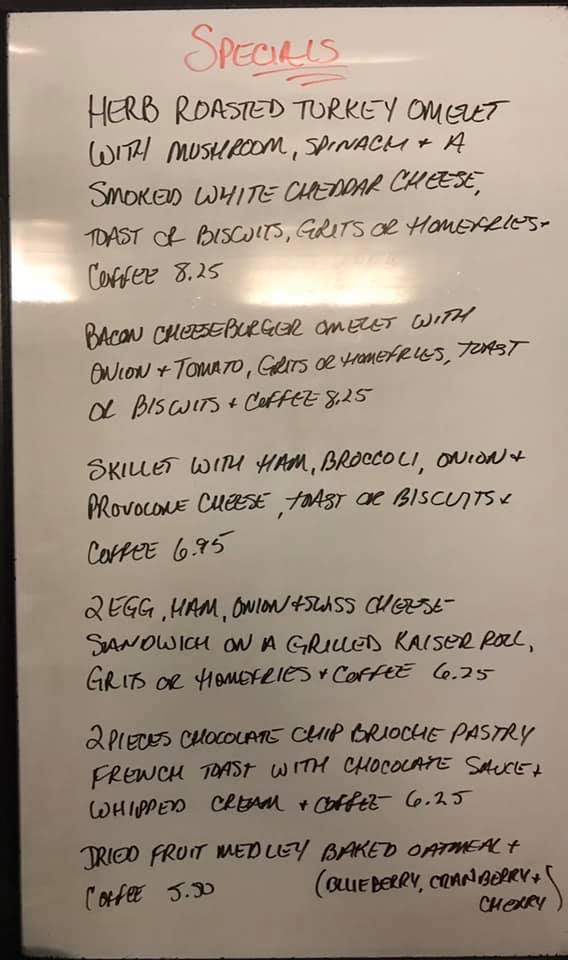 SPECIALS
HERB ROASTED TURKEY OMELET
WITH MUSHROOM, SPINACH + A
SMOKED WHITE CHEDDAR CHEESE,
TOAST OR BISCUITS, GRITS OR HOMEFRIES +
COFFEE 8.25
BACON CHEESEBURGER OMELET WITH
ONION + TOMATO, GRITS OR HOMEFRIES, TOAST
OR BISCUITS + COFFEE 8.25
SKILLET WITH HAM, BROCCOLI, ONION +
PROVOLONE CHEESE, TOAST OR BISCUITS +
COFFEE 6.95
2 EGG, HAM, ONION + SWISS CHEESE
SANDWICH ON A GRILLED KAISER ROLL,
GRITS OR HOMEFRIES + COFFEE 6.25
2 PIECES CHOCOLATE CHIP BRIOCHE PASTRY
FRENCH TOAST WITH CHOCOLATE SAUCE +
WHIPPED CREAM + COFFEE 6.25
DRIED FRUIT MEDLEY BAKED OATMEAL +
COFFEE 5.50 (BLUEBERRY, CRANBERRY +
CHERRY)